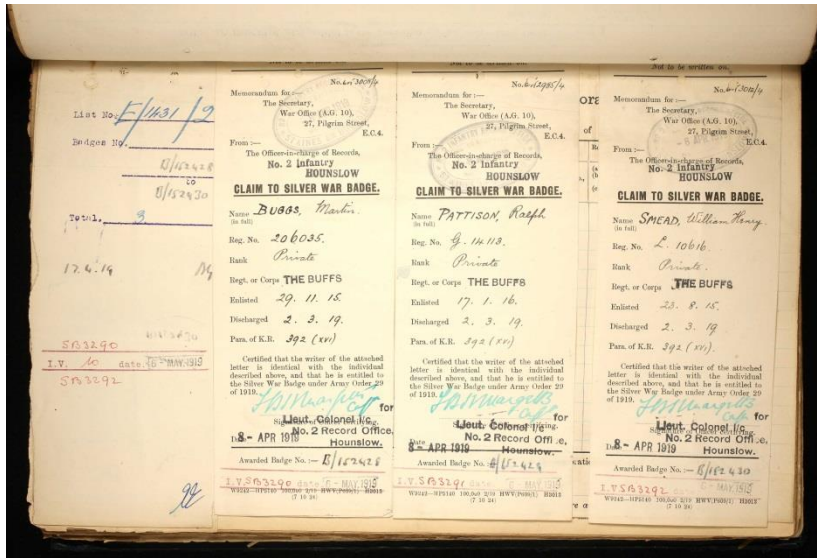 List No. E/1431/2
Badges No.
B/152428
to
B/152430
Total. 3
17.4.19
SB3290
I.V. to date. 6 - MAY. 1919
SB3292
Not to be written on.
Memorandum for :—
The Secretary,
War Office (A.G. 10),
27, Pilgrim Street,
E.C.4.
From :—
The Officer-in-charge of Records,
No. 2 Infantry
HOUNSLOW
CLAIM TO SILVER WAR BADGE.
Name BUGGS, Martin.
(in full)
Reg. No. 206035.
Rank Private
Regt. or Corps THE BUFFS
Enlisted 29. 11. 15.
Discharged 2. 3. 19.
Para. of K.R. 392 (xvi)
Certified that the writer of the attached
letter is identical with the individual
described above, and that he is entitled to
the Silver War Badge under Army Order 29
of 1919.
for
Lieut. Colonel i/c
No. 2 Record Office,
8 - APR 1919 Hounslow.
Awarded Badge No. :— B/152428
I.V. SB3290 date 6 - MAY. 1919
W9242—MP5140 100,000 2/19 HWV(P699/1) H3013
(7 10 24)
Not to be written on.
Memorandum for :—
The Secretary,
War Office (A.G. 10),
27, Pilgrim Street,
E.C.4.
From :—
The Officer-in-charge of Records,
No. 2 Infantry
HOUNSLOW
CLAIM TO SILVER WAR BADGE.
Name PATTISON, Ralph
(in full)
Reg. No. G. 14113.
Rank Private
Regt. or Corps THE BUFFS
Enlisted 17. 1. 16.
Discharged 2. 3. 19.
Para. of K.R. 392 (xvi)
Certified that the writer of the attached
letter is identical with the individual
described above, and that he is entitled to
the Silver War Badge under Army Order 29
of 1919.
for
Lieut. Colonel i/c
No. 2 Record Offi e,
Date 8 - APR 1919 Hounslow.
Awarded Badge No. :— B/152429
I.V. SB3291 date 6 - MAY. 1919
W9242—MP5140 100,000 2/19 HWV(P699/1) H3013
(7 10 24)
Not to be written on.
Memorandum for :—
The Secretary,
War Office (A.G. 10),
27, Pilgrim Street,
E.C.4.
From :—
The Officer-in-charge of Records,
No. 2 Infantry
HOUNSLOW
CLAIM TO SILVER WAR BADGE.
Name SMEAD, William Henry.
(in full)
Reg. No. L. 10616.
Rank Private.
Regt. or Corps THE BUFFS
Enlisted 23. 8. 15.
Discharged 2. 3. 19
Para. of K.R. 392 (xvi).
Certified that the writer of the attached
letter is identical with the individual
described above, and that he is entitled to
the Silver War Badge under Army Order 29
of 1919.
for
Lieut. Colonel i/c
No. 2 Record Offi e,
8 - APR 1919 Hounslow.
Awarded Badge No. :— B/152430
I.V. SB3292 date 6 - MAY. 1919
W9242—MP5140 100,000 2/19 HWV(P699/1) H3013
(7 10 24)